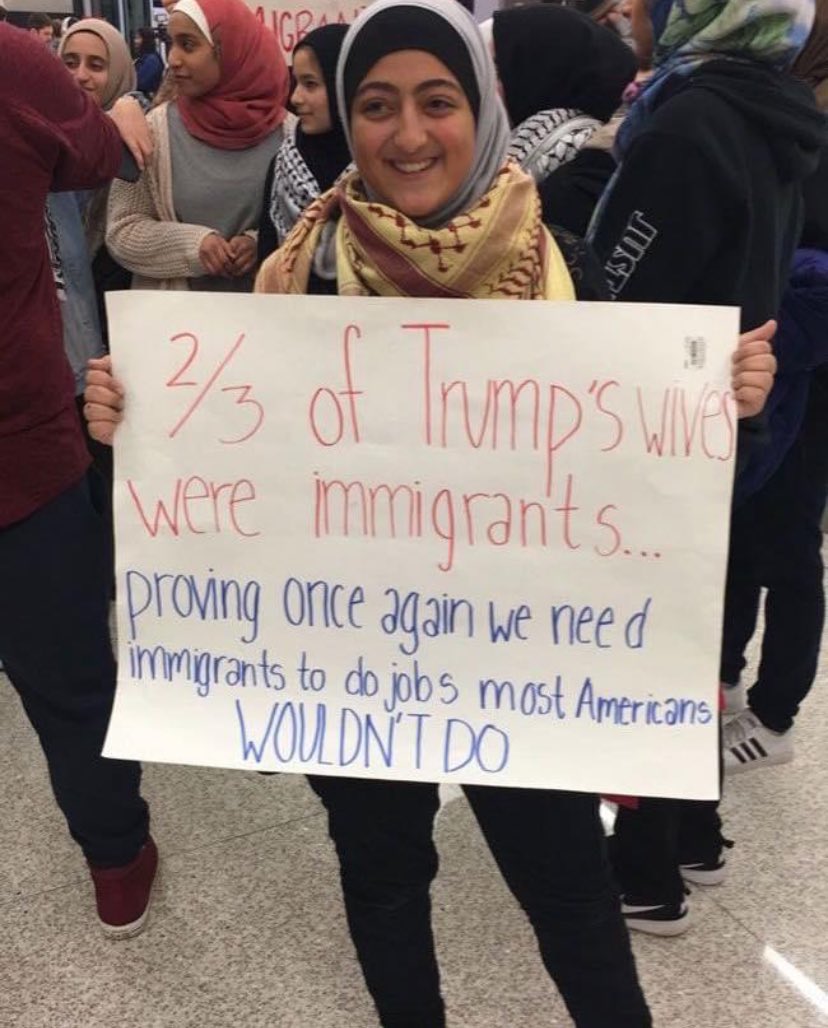 MIGRAN
JUST
2/3 of Trump's wives
were immigrants...
proving once again we need
immigrants to do jobs most Americans
WOULDN'T DO